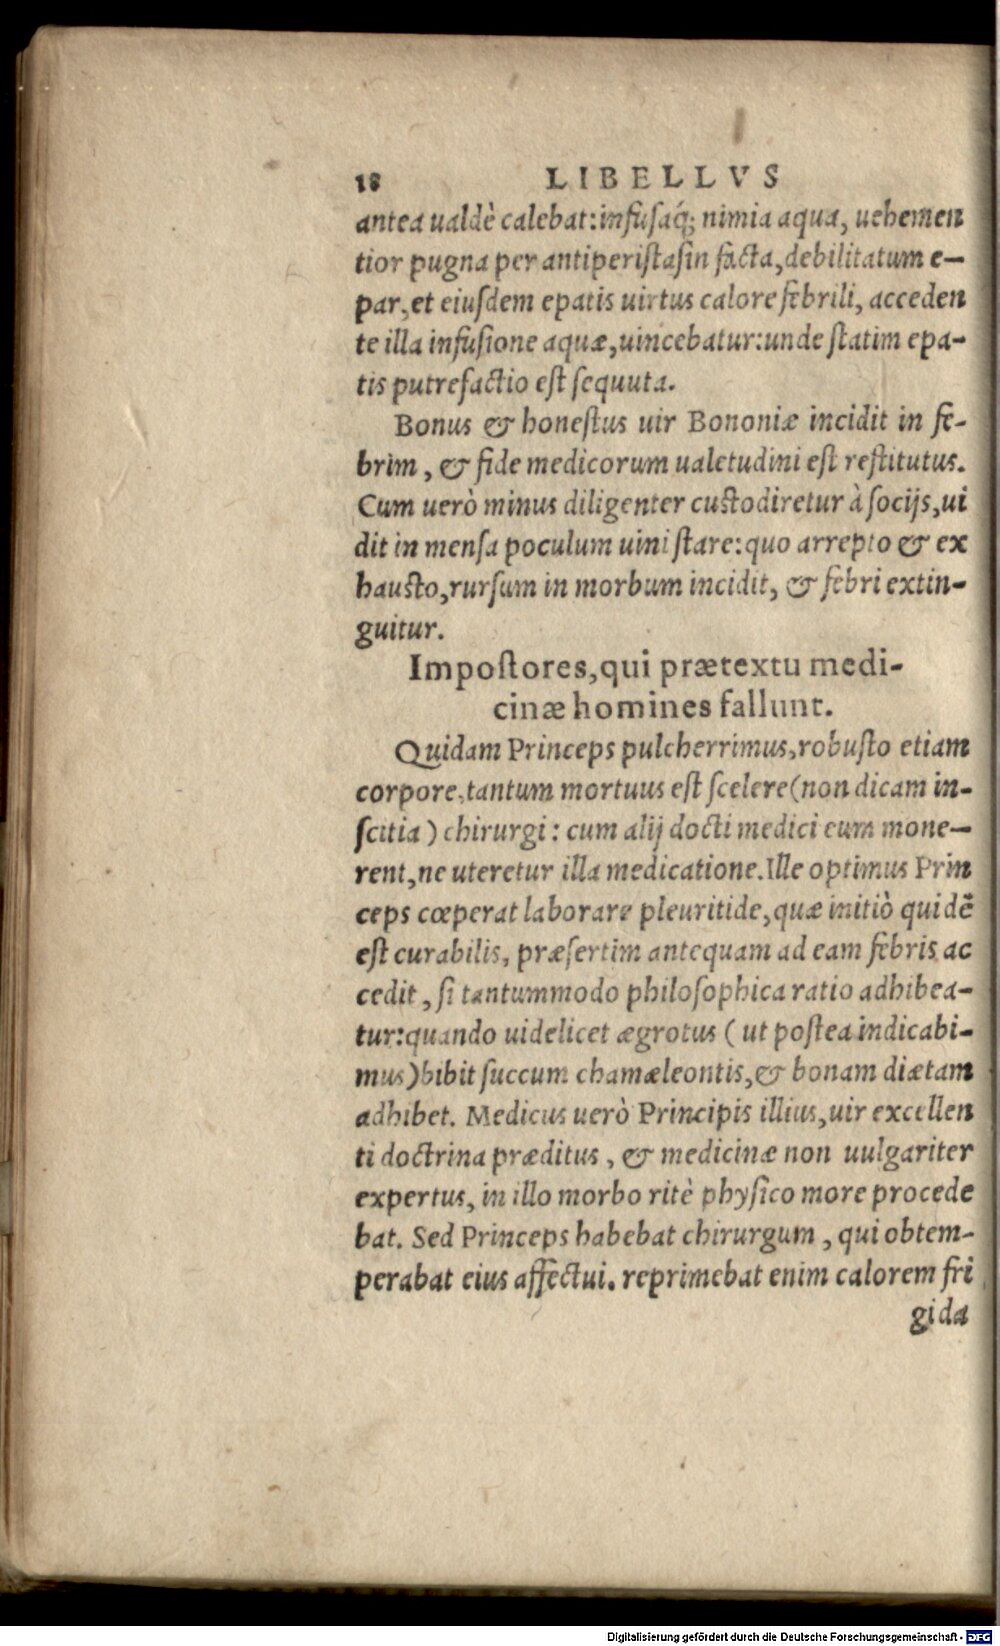 18 LIBELLVS
antea ualdè calebat: infuſaq́; nimia aqua, uehemen
tior pugna per antiperiſtaſin facta, debilitatum e-
par, et eiuſdem epatis uirtus calore febrili, acceden
te illa infuſione aquæ, uincebatur: unde ſtatim epa-
tis putrefactio eſt ſequuta.
Bonus & honeſtus uir Bononiæ incidit in fe-
brim, & fide medicorum ualetudini eſt reſtitutus.
Cum uerò minus diligenter cuſtodiretur à ſocijs, ui
dit in menſa poculum uini ſtare: quo arrepto & ex
hauſto, rurſum in morbum incidit, & febri extin-
guitur.
Impoſtores, qui prætextu medi-
cinæ homines fallunt.
Quidam Princeps pulcherrimus, robuſto etiam
corpore, tantum mortuus eſt ſcelere (non dicam in-
ſcitia) chirurgi: cum alij docti medici eum mone-
rent, ne uteretur illa medicatione. Ille optimus Prin
ceps cœperat laborare pleuritide, quæ initiò quidẽ
eſt curabilis, præſertim antequam ad eam febris ac
cedit, ſi tantummodo philoſophica ratio adhibea-
tur: quando uidelicet ægrotus (ut poſtea indicabi-
mus) bibit ſuccum chamæleontis, & bonam diætam
adhibet. Medicus uerò Principis illius, uir excellen
ti doctrina præditus, & medicinæ non uulgariter
expertus, in illo morbo ritè phyſico more procede
bat. Sed Princeps habebat chirurgum, qui obtem-
perabat eius affectui. reprimebat enim calorem fri
gida
Digitalisierung gefördert durch die Deutsche Forschungsgemeinschaft - DFG